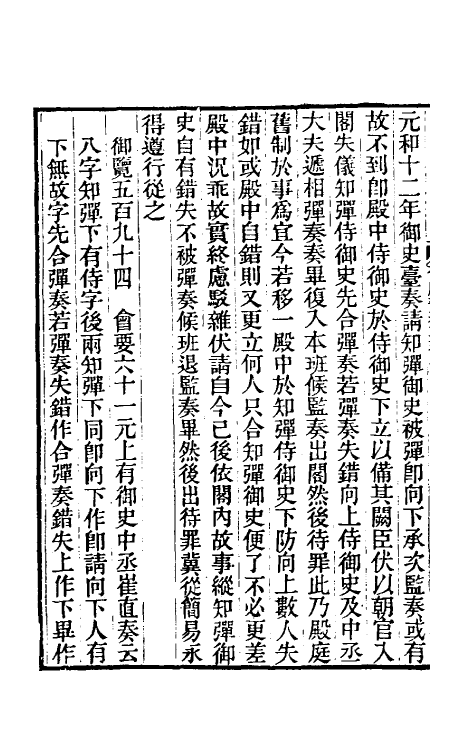 元和十二年御史臺奏請知彈御史被彈卽向下承次監奏或有
故不到卽殿中侍御史於侍御史下立以備其闕臣伏以朝官入
閣失儀知彈侍御史先合彈奏若彈奏失錯向上侍御史及中丞
大夫遞相彈奏奏畢復入本班候監奏出閣然後待罪此乃殿庭
舊制於事爲宜今若移一殿中於知彈侍御史下防向上數人失
錯如或殿中自錯則又更立何人只合知彈御史便了不必更差
殿中況乖故實終慮駁雜伏請自今已後依閣內故事縱知彈御
史自有錯失不被彈奏候班退監奏畢然後出待罪冀從簡易永
得遵行從之
御覽五百九十四　會要六十一元上有御史中丞崔直奏云
八字知彈下有侍字後兩知彈下同卽向下作卽請向下人有
下無故字先合彈奏若彈奏失錯作合彈奏錯失上作下畢作